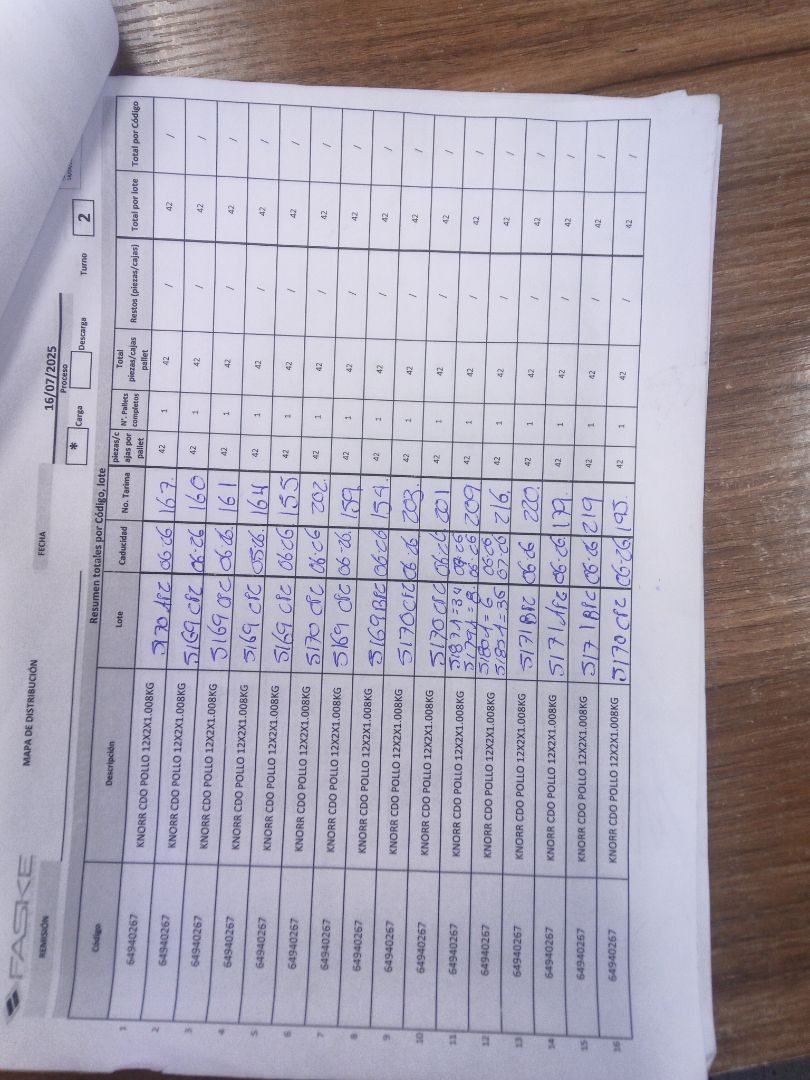 FASKE
MAPA DE DISTRIBUCIÓN
REMISIÓN FECHA 16/07/2025
Proceso
* Carga Descarga Turno 2
Resumen totales por Código, lote
Código Descripción Lote Caducidad No. Tarima piezas/cajas por pallet N°. Pallets completos Total piezas/cajas pallet Restos (piezas/cajas) Total por lote Total por Código
1 64940267 KNORR CDO POLLO 12X2X1.008KG 5170 APC 06-26 167. 42 1 42 / 42 /
2 64940267 KNORR CDO POLLO 12X2X1.008KG 5169 CPC 06-26 160 42 1 42 / 42 /
3 64940267 KNORR CDO POLLO 12X2X1.008KG 5169 CPC 06-26. 161 42 1 42 / 42 /
4 64940267 KNORR CDO POLLO 12X2X1.008KG 5169 CPC 05-26. 164 42 1 42 / 42 /
5 64940267 KNORR CDO POLLO 12X2X1.008KG 5169 CPC 06-26 155 42 1 42 / 42 /
6 64940267 KNORR CDO POLLO 12X2X1.008KG 5170 CPC 06-26 202. 42 1 42 / 42 /
7 64940267 KNORR CDO POLLO 12X2X1.008KG 5169 CPC 06-26. 159. 42 1 42 / 42 /
8 64940267 KNORR CDO POLLO 12X2X1.008KG 5169 BPC 06-26 154. 42 1 42 / 42 /
9 64940267 KNORR CDO POLLO 12X2X1.008KG 5170 CPC 06-26 203. 42 1 42 / 42 /
10 64940267 KNORR CDO POLLO 12X2X1.008KG 5170 CPC 06-26 201 42 1 42 / 42 /
11 64940267 KNORR CDO POLLO 12X2X1.008KG 5187 1=34 07-26 209 42 1 42 / 42 /
5179 1=8. 06-26
12 64940267 KNORR CDO POLLO 12X2X1.008KG 5180 1=6 06-26 216. 42 1 42 / 42 /
5187 1=36 07-26
13 64940267 KNORR CDO POLLO 12X2X1.008KG 5171 BPC 06-26 220. 42 1 42 / 42 /
14 64940267 KNORR CDO POLLO 12X2X1.008KG 5171 APC 06-26. 199. 42 1 42 / 42 /
15 64940267 KNORR CDO POLLO 12X2X1.008KG 5171 BPC 06-26 219 42 1 42 / 42 /
16 64940267 KNORR CDO POLLO 12X2X1.008KG 5170 CPC 06-26 195. 42 1 42 / 42 /